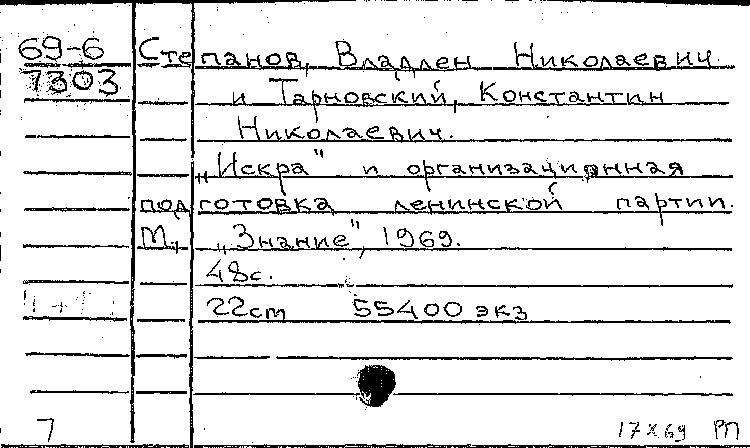 69-6 Степанов, Владлен Николаевич
7303 и Тарновский, Константин
Николаевич.
„Искра" и организационная
подготовка ленинской партии.
М., „Знание", 1969.
48с.
22cm 55400 экз
7 17 X 69 РП